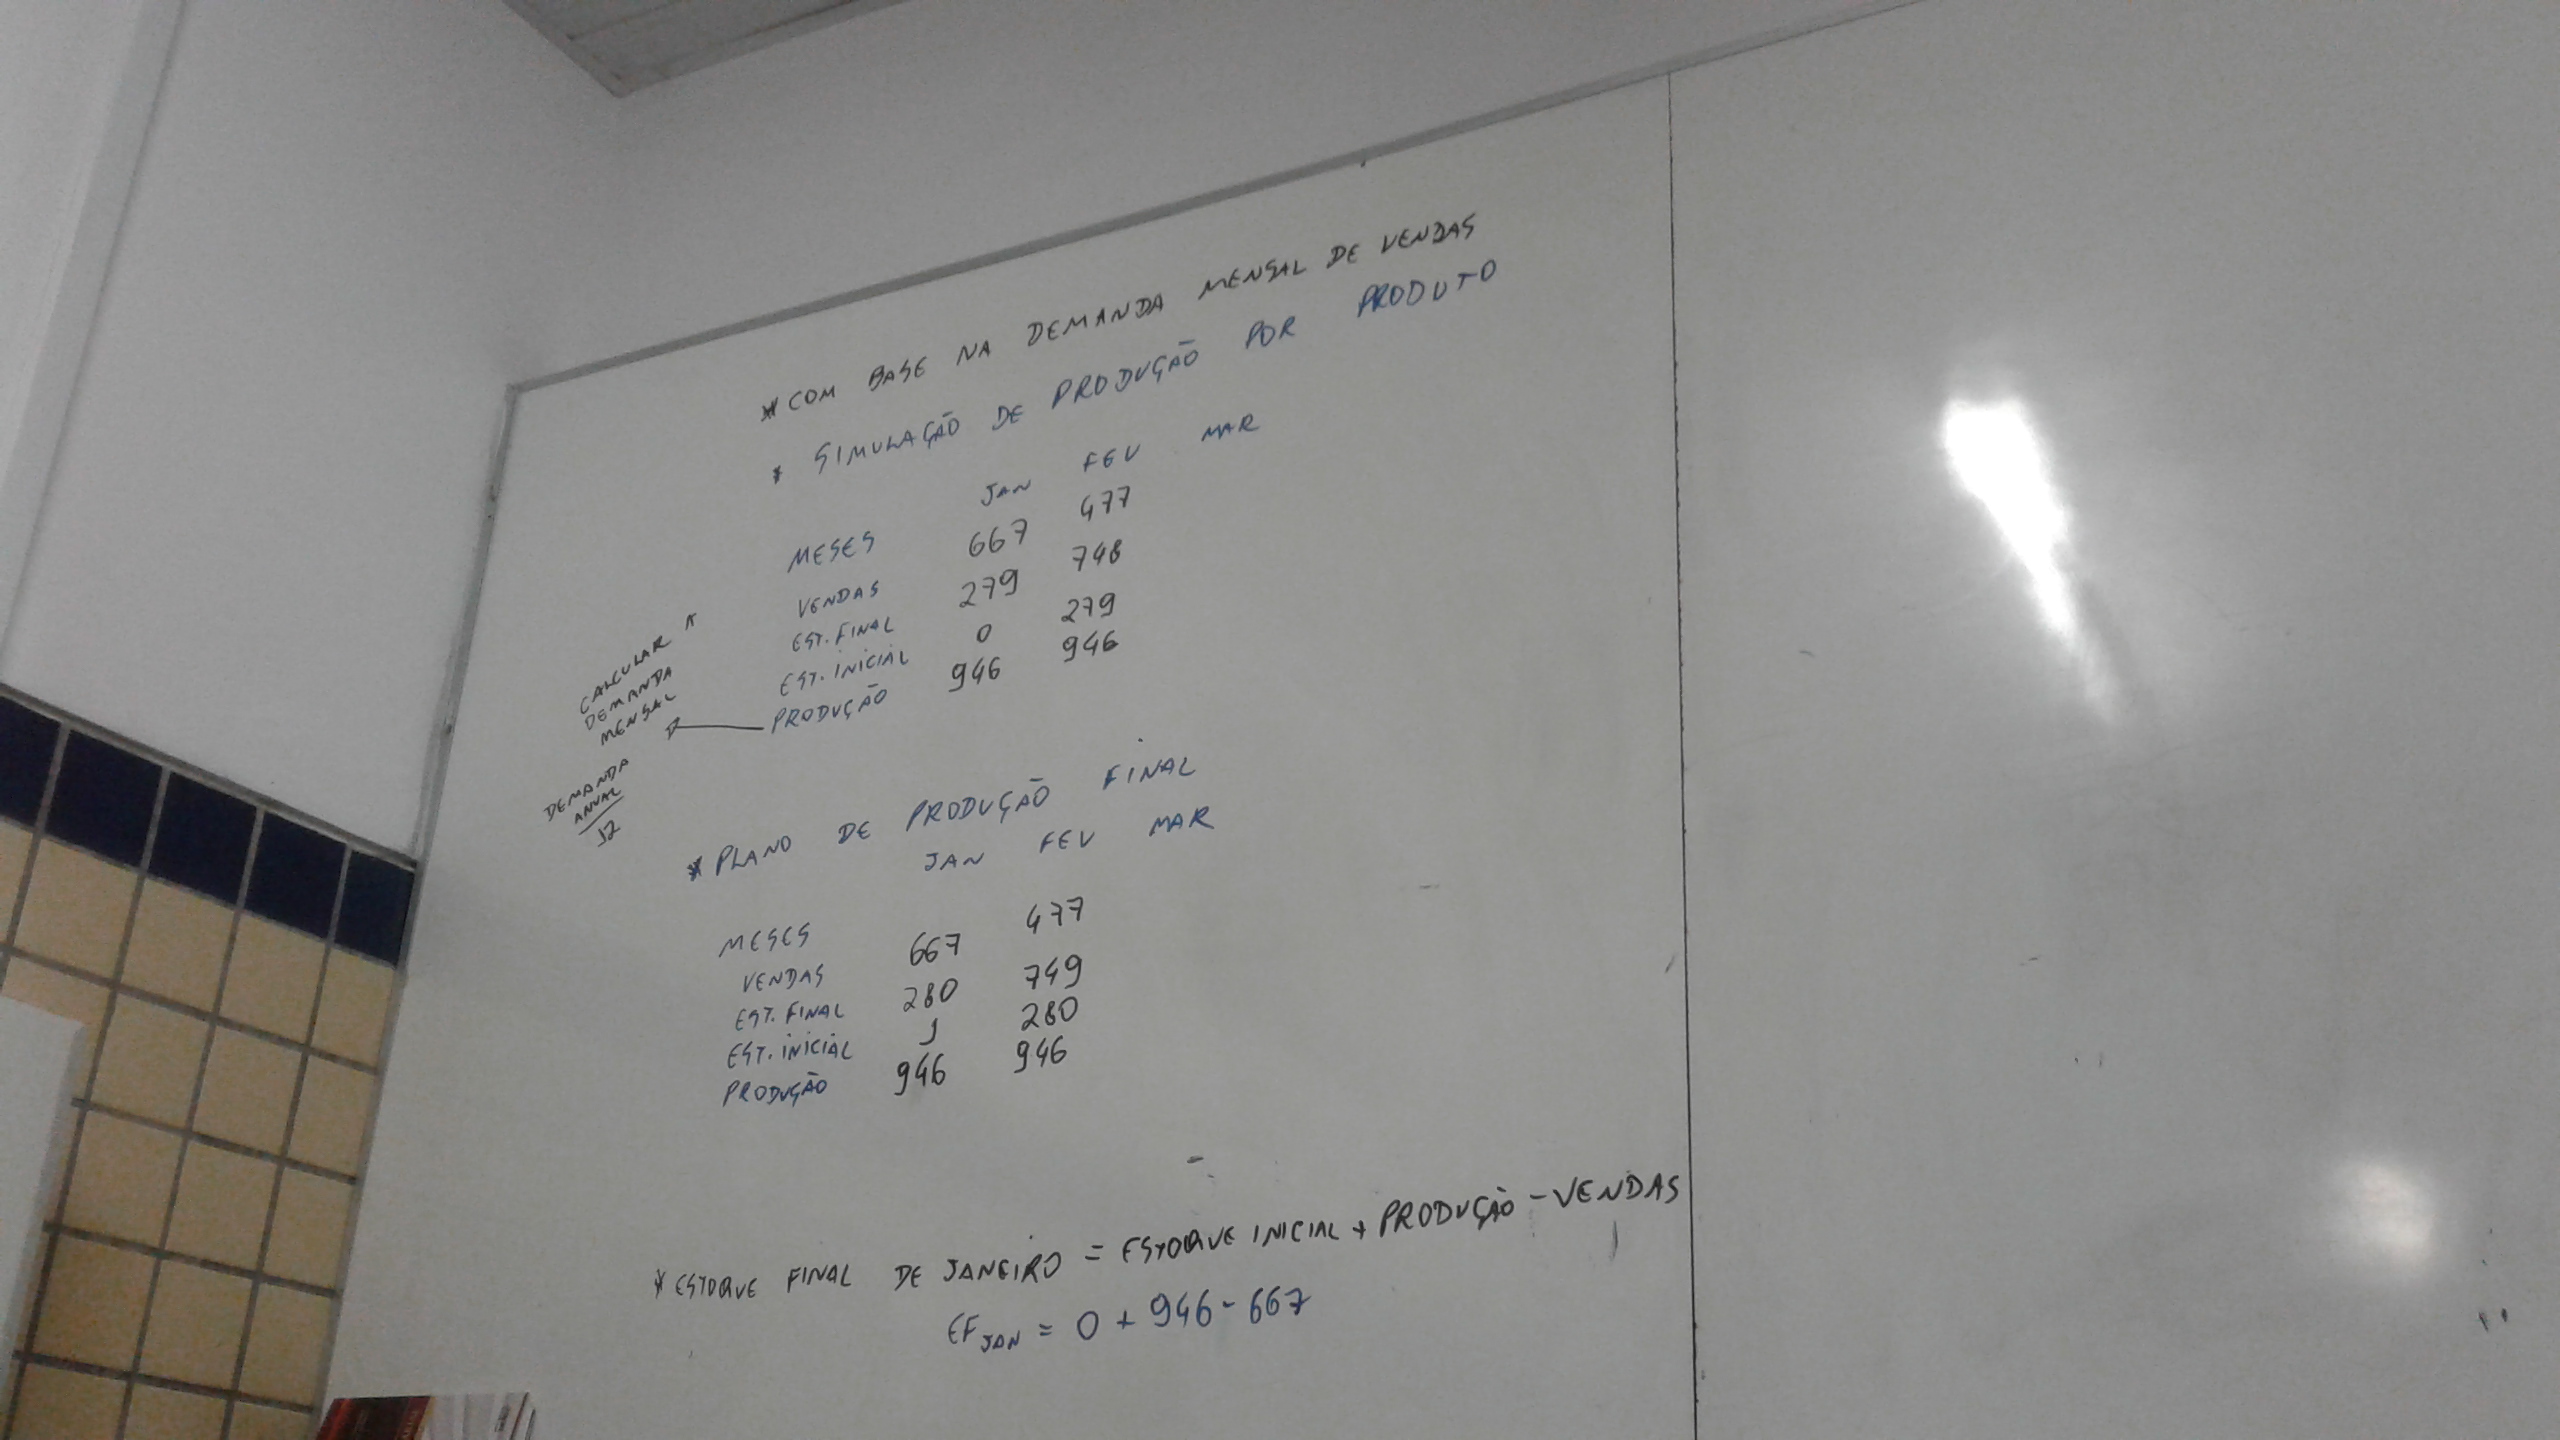 * COM BASE NA DEMANDA MENSAL DE VENDAS
* SIMULAÇÃO DE PRODUÇÃO POR PRODUTO
MESES JAN FEV MAR
VENDAS 667 477
EST. FINAL 279 748
EST. INICIAL 0 279
PRODUÇÃO 946 946
CALCULAR
DEMANDA
MENSAL
DEMANDA
ANUAL
12
* PLANO DE PRODUÇÃO FINAL
MESES JAN FEV MAR
VENDAS 667 477
EST. FINAL 280 749
EST. INICIAL 1 280
PRODUÇÃO 946 946
* ESTOQUE FINAL DE JANEIRO = ESTOQUE INICIAL + PRODUÇÃO - VENDAS
EF JAN = 0 + 946 - 667